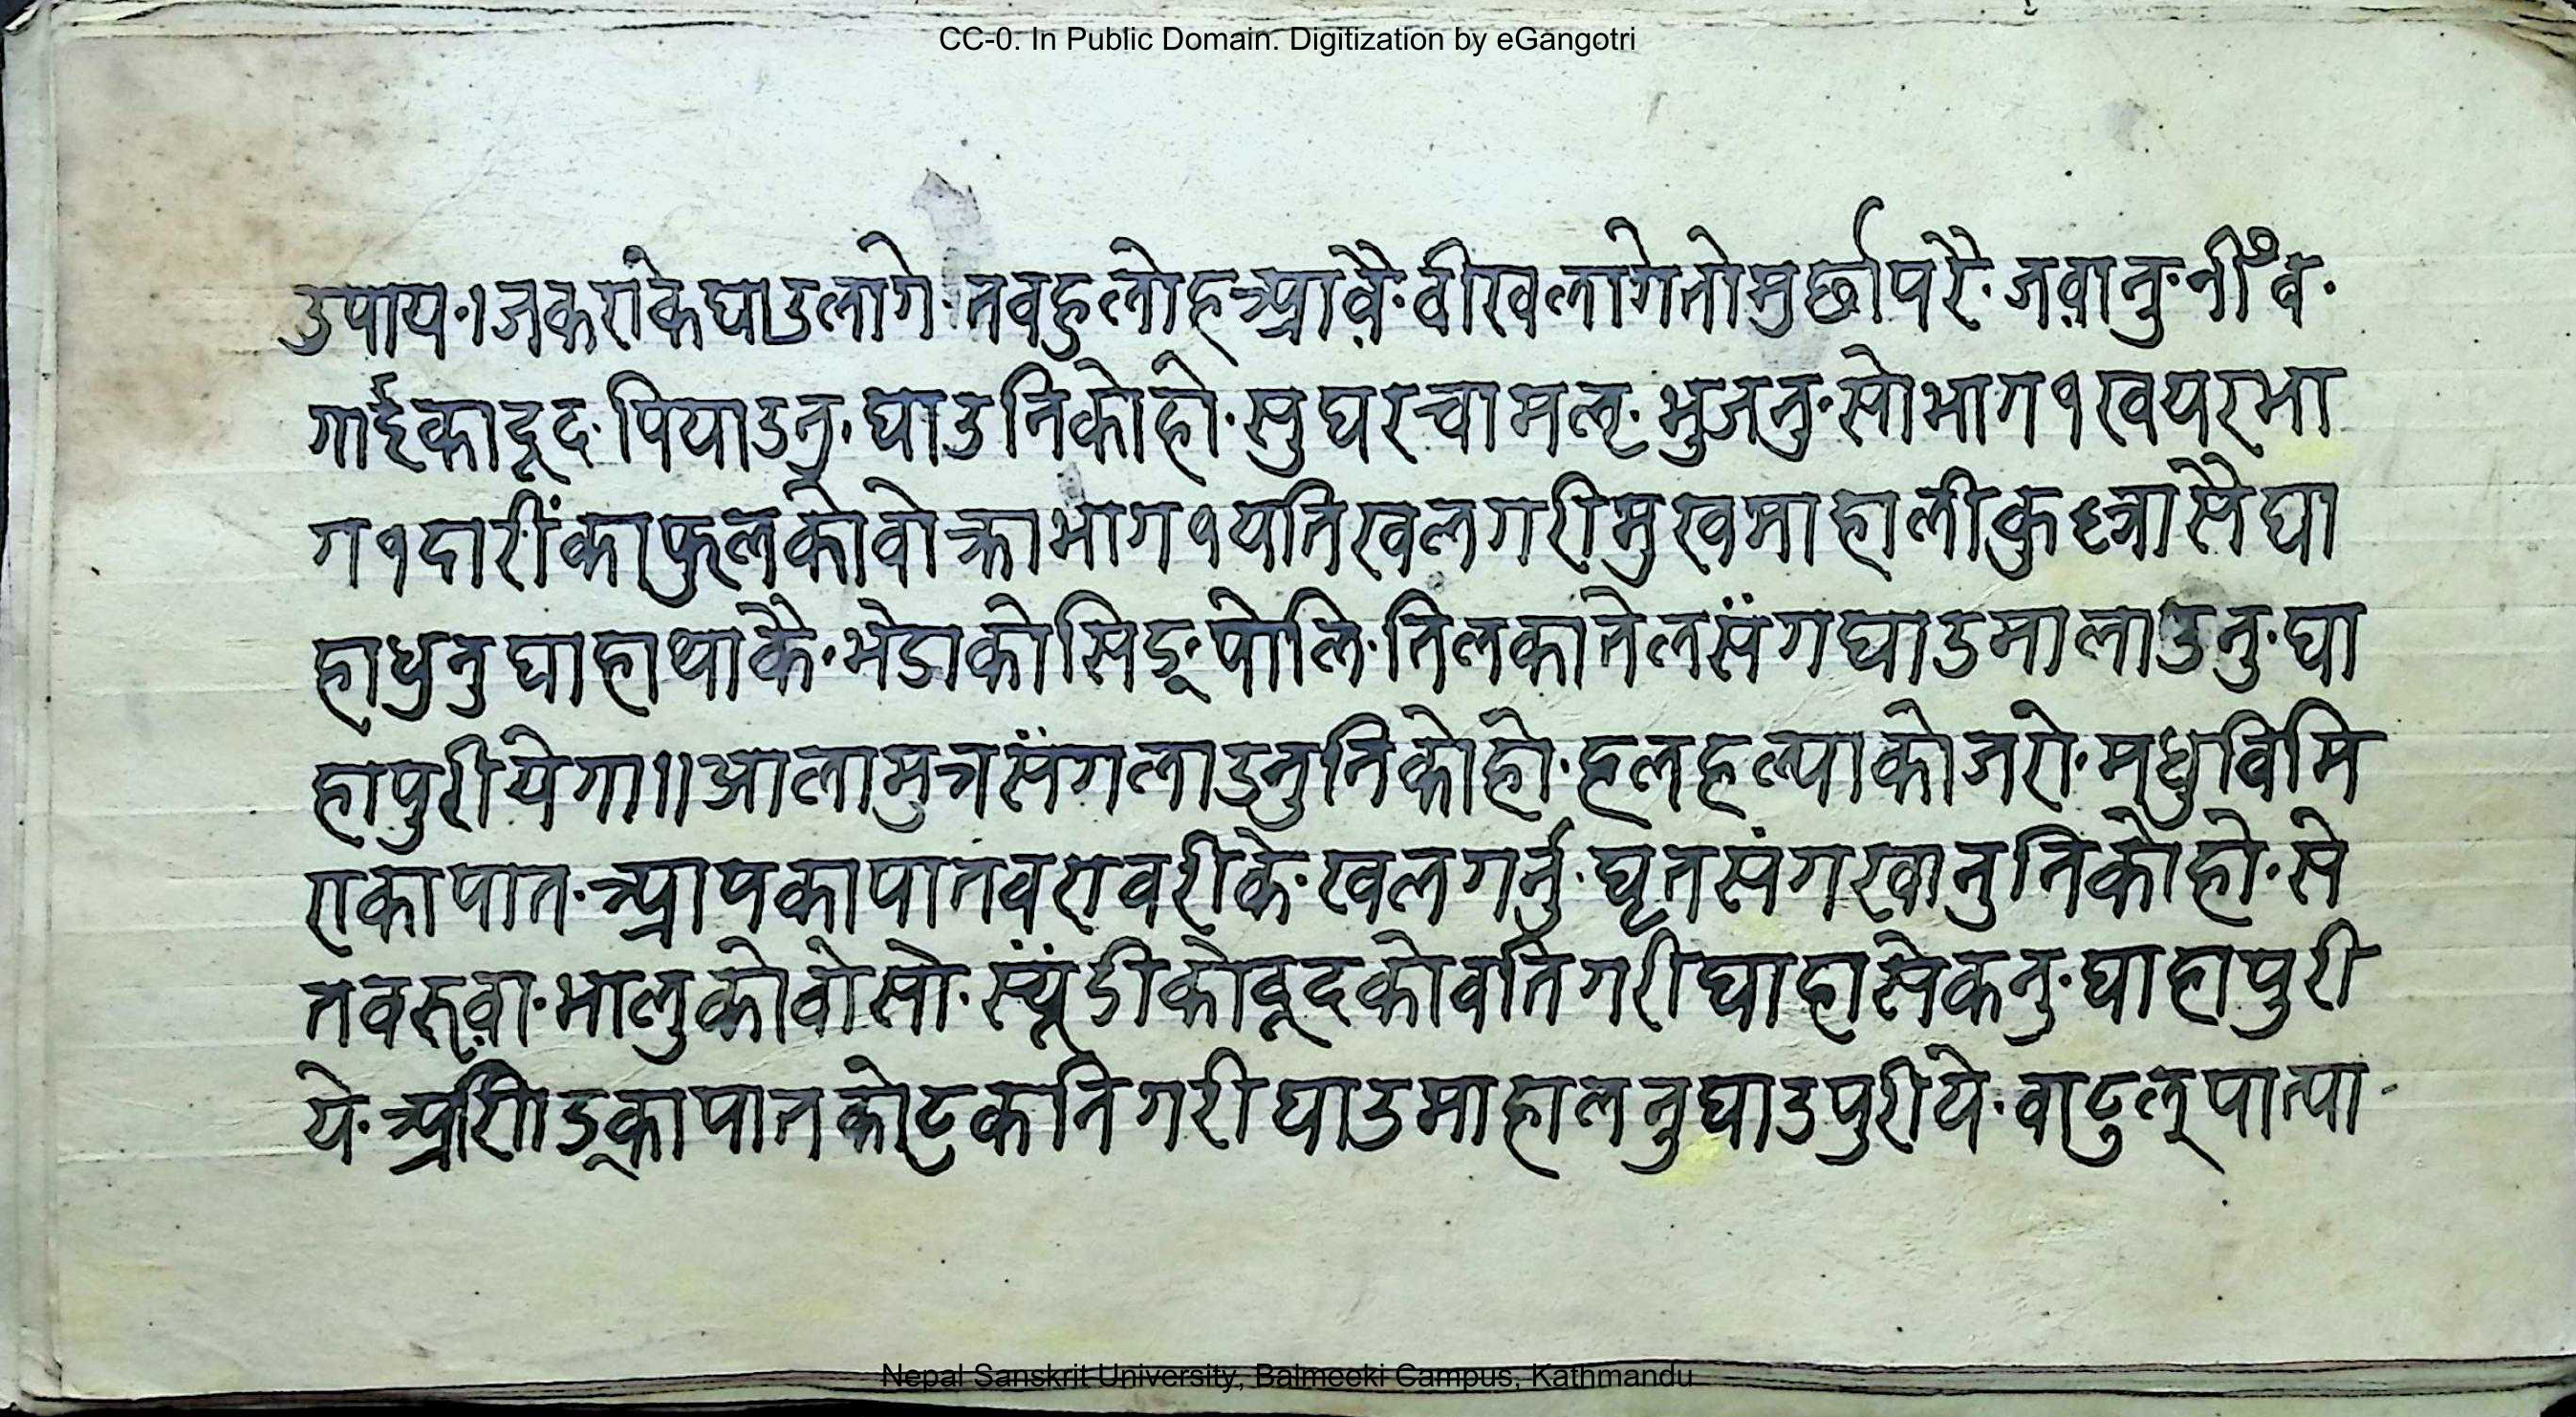 CC-0. In Public Domain. Digitization by eGangotri
उपाय·।जकरांकेघाउलागे·तवहुलोहआवै·वीखलागेतोमुर्छापरै·जवानु·नीँव·
गाईकादूद·पियाउनु·घाउनिकोहो·सुघरचामलृ·भुजनु·सोभाग१खयरभा
ग१दारींकाफुलकोवोक्राभाग१यतिखलगरीमुखमाहालीकु सैघा
हाधुनुघाहाथाकै·भेडाकोसिङ्·पोलि·तिलकातेलसंगघाउमालाउनु·घा
हापुरीयेगा॥आलामुत्रसंगलाउनुनिकोहो·हलहल्पाकोजरो·मधुविमि
राकापात·आपकापातवरावरीके·खलगर्नु·घृतसंगखानुनिकोहो·से
तवरुवा·भालुकोवोसो·स्यूंडीकोदूदकोवतिगरीघाहासेकनु·घाहापुरी
ये· कापातकोटकनिगरीघाउमाहालनुघाउपुरीये·वाटुल्पात्पा·
Nepal Sanskrit University, Balmeeki Campus, Kathmandu